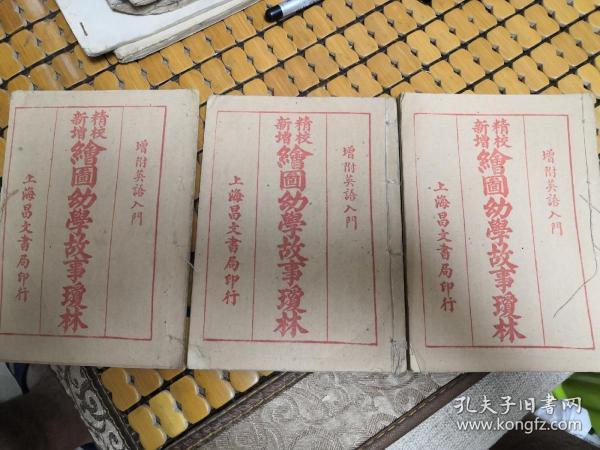 增附英語入門
精校
新增
繪圖幼學故事瓊林
上海昌文書局印行
增附英語入門
精校
新增
繪圖幼學故事瓊林
上海昌文書局印行
增附英語入門
精校
新增
繪圖幼學故事瓊林
上海昌文書局印行
孔夫子旧书网
www.kongfz.com